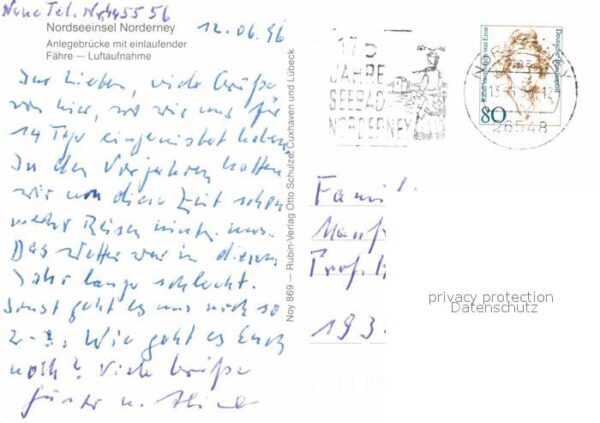 Neue Tel. Nr. 445556
12.06.96
Nordseeinsel Norderney
Anlegebrücke mit einlaufender
Fähre — Luftaufnahme
Ihr Lieben, viele Grüße
von hier, wo wir uns für
14 Tge eingenistet haben.
In den Vorjahren hatten
wir um diese Zeit schon
Reisen hinter uns.
Das Wetter war in diesem
Jahr lange schlecht.
Sonst geht es uns noch so
Wie geht es Euch
noch? Viele Grüße
u.
Noy 869 — Rubin-Verlag Otto Schulze, Cuxhaven und Lübeck
175
JAHRE
SEEBAD
NORDERNEY
NORDERNEY
26548
Deutsche Bundespost
80
Fami
Manf
Prof.
193
privacy protection
Datenschutz